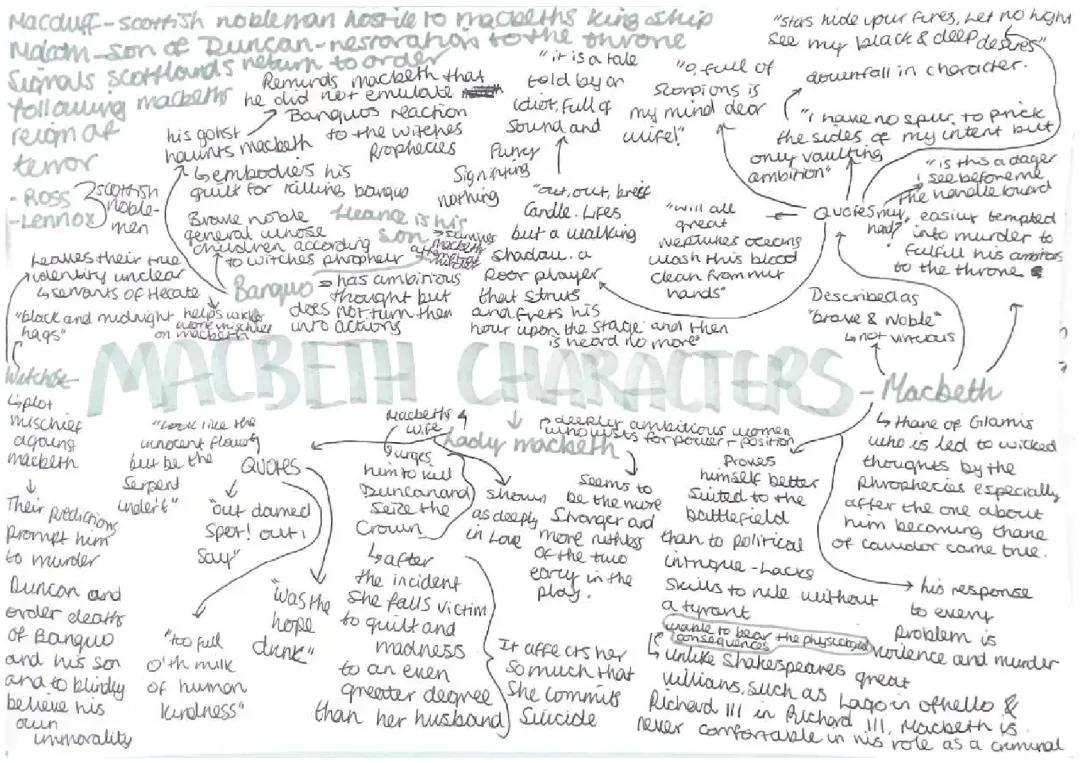 Macduff - scottish nobleman hostile to macbeths kingship
Malcom - son of Duncan - restoration to the throne
Signals scottlands return to order
following macbeths
reign of
terror
- Ross
- Lennox
scottish
noble-
men
his gohst
haunts macbeth
Reminds macbeth that
he did not emulate
Banquos reaction
to the witches
prophecies
↳ embodies his
guilt for killing banquo
Brave noble
general whose
children according
to witches prophecy
Fleance is his
son
Banquo
= has ambitious
thought but
does not turn then
into actions
"it is a tale
told by an
idiot, full of
sound and
fury
Signifying
nothing
"out, out, brief
candle. Lifes
but a walking
shadow. a
poor player
that struts
and frets his
hour upon the stage and then
is heard no more"
"O, full of
scorpions is
my mind dear
wife!"
"Stars hide your fires, Let no light
See my black & deep desires"
downfall in character.
"I have no spur, to prick
the sides of my intent but
only vaulting
ambition"
"is this a dager
I see before me
The handle toward
my
hand?"
Quotes
"will all
great
neptunes oceans
wash this blood
clean from my
hands"
easily tempted
into murder to
fulfull his ambitions
to the throne
Described as
"brave & Noble"
↳ not virtuous
leaves their true
identity unclear
↳ servants of Hecate
"black and midnight
hags"
helps
mischief
on macbeth
MACBETH CHARACTERS
- Macbeth
Witches
↳ plot
mischief
against
macbeth
↓
Their predictions
prompt him
to murder
Duncan and
order deaths
of Banquo
and his son
and to blindly
believe his
own
immorality
"Look like the
innocent flower
but be the
Serpent
under't"
QUOTES
"out damed
spot! out i
say"
"too full
o'th milk
of human
kindness"
"was the
hope
drunk"
Macbeths
wife
Lady macbeth
deeply ambitious women
who lusts for power + position
↳ urges
him to kill
Duncan and
seize the
crown
↳ after
the incident
she falls victim
to guilt and
madness
to an even
greater degree
than her husband
shown
as deeply
in Love
Seems to
be the more
Stronger and
more ruthless
of the two
early in the
play.
It affects her
so much that
she commits
Suicide
Proves
himself better
suited to the
battlefield
than to political
intrigue - Lacks
skills to rule without
a tyrant
unable to bear the
consequences
↳ unlike Shakespeares great
villians, such as Iago in othello &
Richard III in Richard III, Macbeth is
never comfortable in his role as a criminal
↳ Thane of Glamis
who is led to wicked
thoughts by the
phrophecies especially
after the one about
him becoming thane
of cawdor came true.
his response
to every
problem is
violence and murder